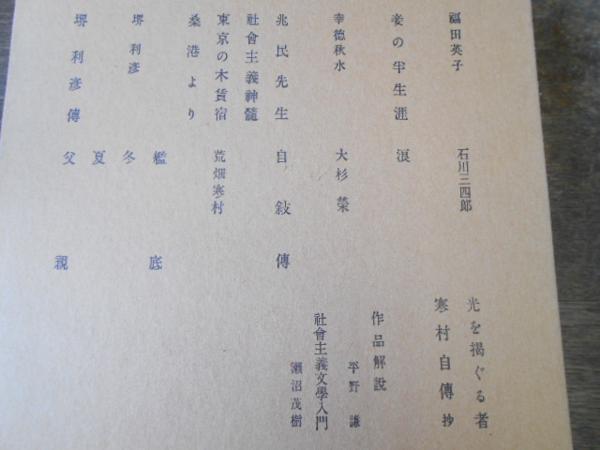 福田英子
妾の半生涯
幸徳秋水
兆民先生
社會主義神髓
東京の木賃宿
桑港より
堺利彥
堺利彥傳
石川三四郎
浪
大杉榮
自敍傳
荒畑寒村
艦底
冬
夏
父親
光を揭ぐる者
寒村自傳抄
作品解說
平野謙
社會主義文學入門
瀨沼茂樹